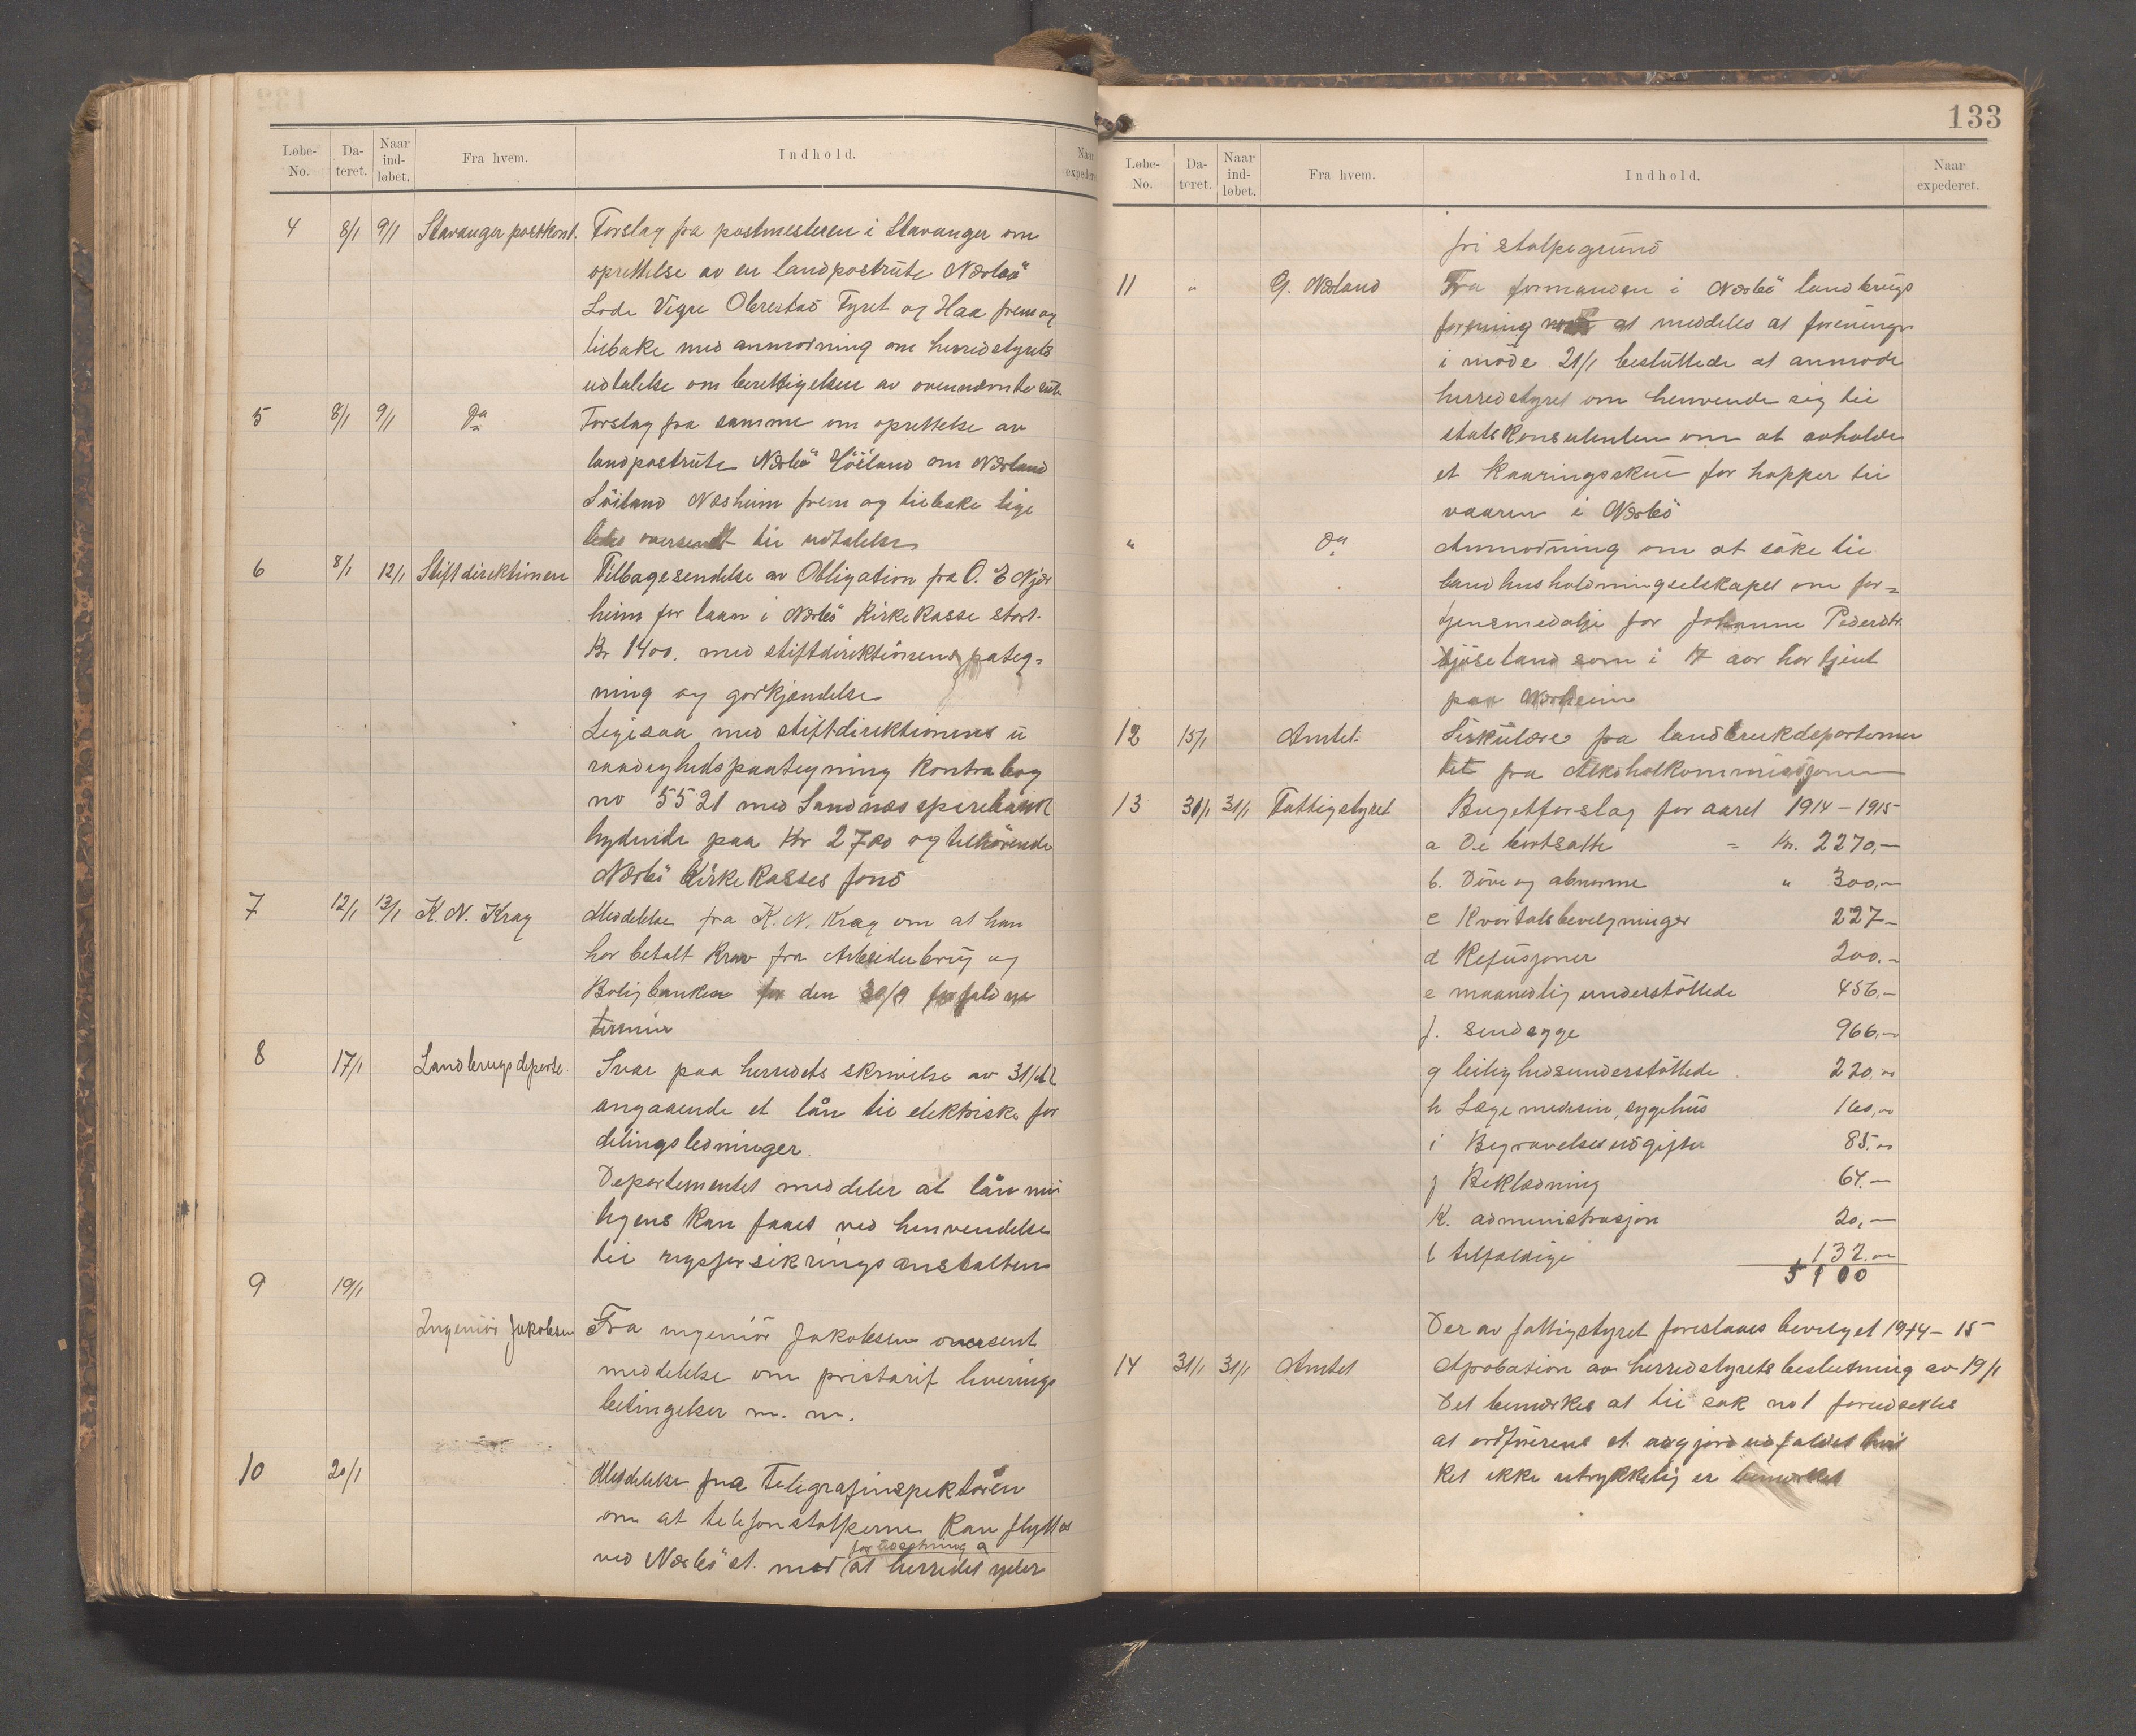 Løbe-No. Da-teret. Naar ind-løbet. Fra hvem. Indhold. Naar expederet
4 8/1 9/1 Stavanger postkont. Forslag fra postmesteren i Stavanger om
oprettelse av en landpostrute Nærbö
Lode Vigre Obrestad Fyret og Haa frem og
tilbake med anmodning om herredstyrets
udtalelse om berettigelsen av ovennævnte rute
5 8/1 9/1 Do Forslag fra samme om oprettelse av
landpostrute Nærbö Höiland om Nærland
Söiland Næsheim frem og tilbake lige
ledes oversendt til udtalelse
6 8/1 12/1 Stiftdirektionen Tilbagesendelse av Obligation fra O. E Njær
heim for laan i Nærbö Kirkekasse stort.
Kr 1400. med stiftdirektionens pateg=
ning og godkjendelse
Ligesaa med stiftdirektionens u
raadighedspaategning Kontrabog
no 5521 med Sandnæs sparebank
lydende paa Kr 2700 og tilhörende
Nærbö Kirkekasses fond
7 12/1 13/1 K. N. Krag Meddelelse fra K. N. Krag om at han
har betalt Krav fra Arbeiderbrug og
Boligbanken for den 30/9 forfaldne
termin
8 17/1 Landbrugsdeparte. Svar paa herredets skrivelse av 31/12
angaaende et lån til elektriske for
delingsledninger.
Departementet meddeler at lån mu
ligens kan faaes ved henvendelse
til rigsforsikringsanstalten
9 19/1
Ingeniör Jakobsen Fra ingeniör Jakobsen oversent
meddelelse om pristarif leverings
betingelser m. m.
10 20/1 Meddelelse fra Telegrafinspektören
om at telefonstolperne kan flyttes
forudsætning a
ved Nærbö st. med at herredet yder
133
Løbe-No. Da-teret. Naar ind-løbet. Fra hvem. Indhold. Naar expederet.
fri stolpegrund
11 " G. Nærland Fra formanden i Nærbö landbrugs
forening at meddeles at foreningen
i möde 21/1 besluttede at anmode
herredstyret om henvende sig til
statskonsulenten om at avholde
et Kaaringsskue for hopper til
vaaren i Nærbö
" Do Anmodning om at söke til
landhusholdningselskapet om for=
tjensmedalje for Johanne Pedersdtr.
Gjöseland som i 17 aar har tjent
paa Nærheim
12 15/1 Amtet. Sirkulære fra landbrukdepartemen
tet fra Alkoholkommissjonen
13 31/1 31/1 Fattigstyret Bugetforslag for aaret 1914-1915
a De bortsatte = Kr. 2270,-
b. Döve og abnorme " 300,-
c Kvartalsbevilgninger 227-
d Refusjoner 200.-
e maanedlig understöttede 456,-
f. sindsyge 966,-
g leilighedsunderstöttede 220,00
h Læge medesin, sygehus 160,00
i Begravelsesudgifter 85.00
j Beklædning 64.-
K. administrasjon 20,-
l tilfældige 132.00
5100
Der av fattigstyret foreslaaes bevilget 1914-15
14 31/1 31/1 Amtet Aprobation av herredstyrets beslutning av 19/1
Det bemærkes at til sak no 1 forudsettes
at ordförerens st. udgjord udfaldet hvil
ket ikke udtrykkelig er bemærket